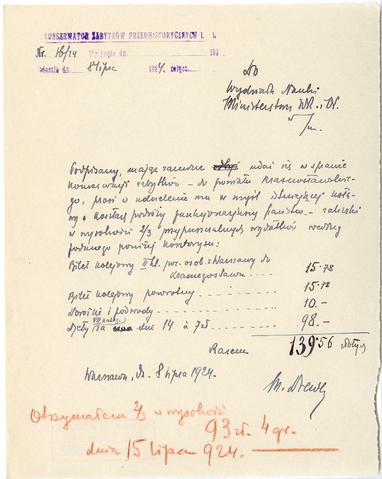 KONSERWATOR ZABYTKÓW PRZEDHISTORYCZNYCH
Nr. 16/24 Wpłynęło dn. 192
dn. 8 lipca 1924. załącz.
Do
Wydziału Nauki
Ministerstwa WR. i OP.
w/m.
Podpisany, mając zamiar udać się w sprawie
konserwacji zabytków do powiatu Krasnostawskie-
go, prosi o udzielenie mu w myśl istniejącej
o kosztach podróży funkcjonarjuszy państw. zaliczki
w wysokości 2/3 przypuszczalnych wydatków według
podanego poniżej kosztorysu:
Bilet kolejowy II kl. poc. osob. z Warszawy do
Krasnegostawu 15.78
Bilet kolejowy powrotny 15.78
Dorożki i podwody 10.—
Djety za dni 14 à 7 zł. 98.—
Razem 139.56 złotych
Warszawa, dn. 8 lipca 1924.
Otrzymałem 2/3 w wysokości
93 zł. 4 gr.
dnia 15 lipca 924.